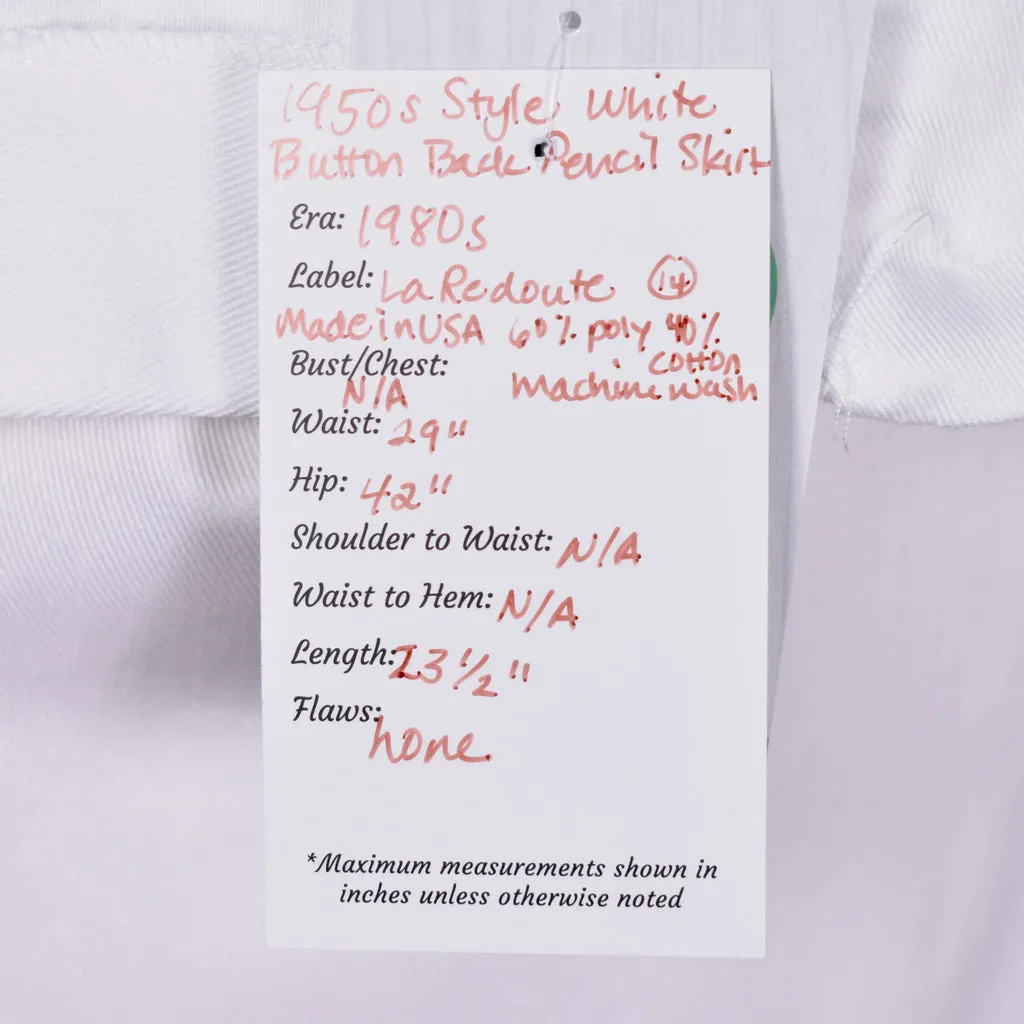 1950s Style White
Button Back Pencil Skirt
Era: 1980s
Label: La Redoute 14
Made in USA 60% poly 40%
cotton
Bust/Chest:
N/A Machine wash
Waist: 29"
Hip: 42"
Shoulder to Waist: N/A
Waist to Hem: N/A
Length: 23 1/2"
Flaws:
none.
*Maximum measurements shown in
inches unless otherwise noted